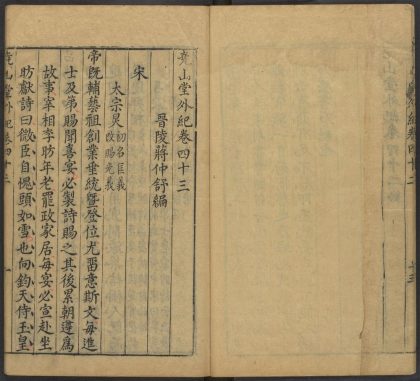 堯山堂外紀卷四十三
晉陵蔣仲舒編
宋
太宗炅
初名匡義
改賜光義
帝既輔藝祖創業垂統暨登位尤畱意斯文每進
士及第賜聞喜宴必製詩賜之其後累朝遵為
故事宰相李昉年老罷政家居每宴必宣赴坐
昉獻詩曰微臣自愧頭如雪也向鈞天侍玉皇
堯山堂外紀卷四十三